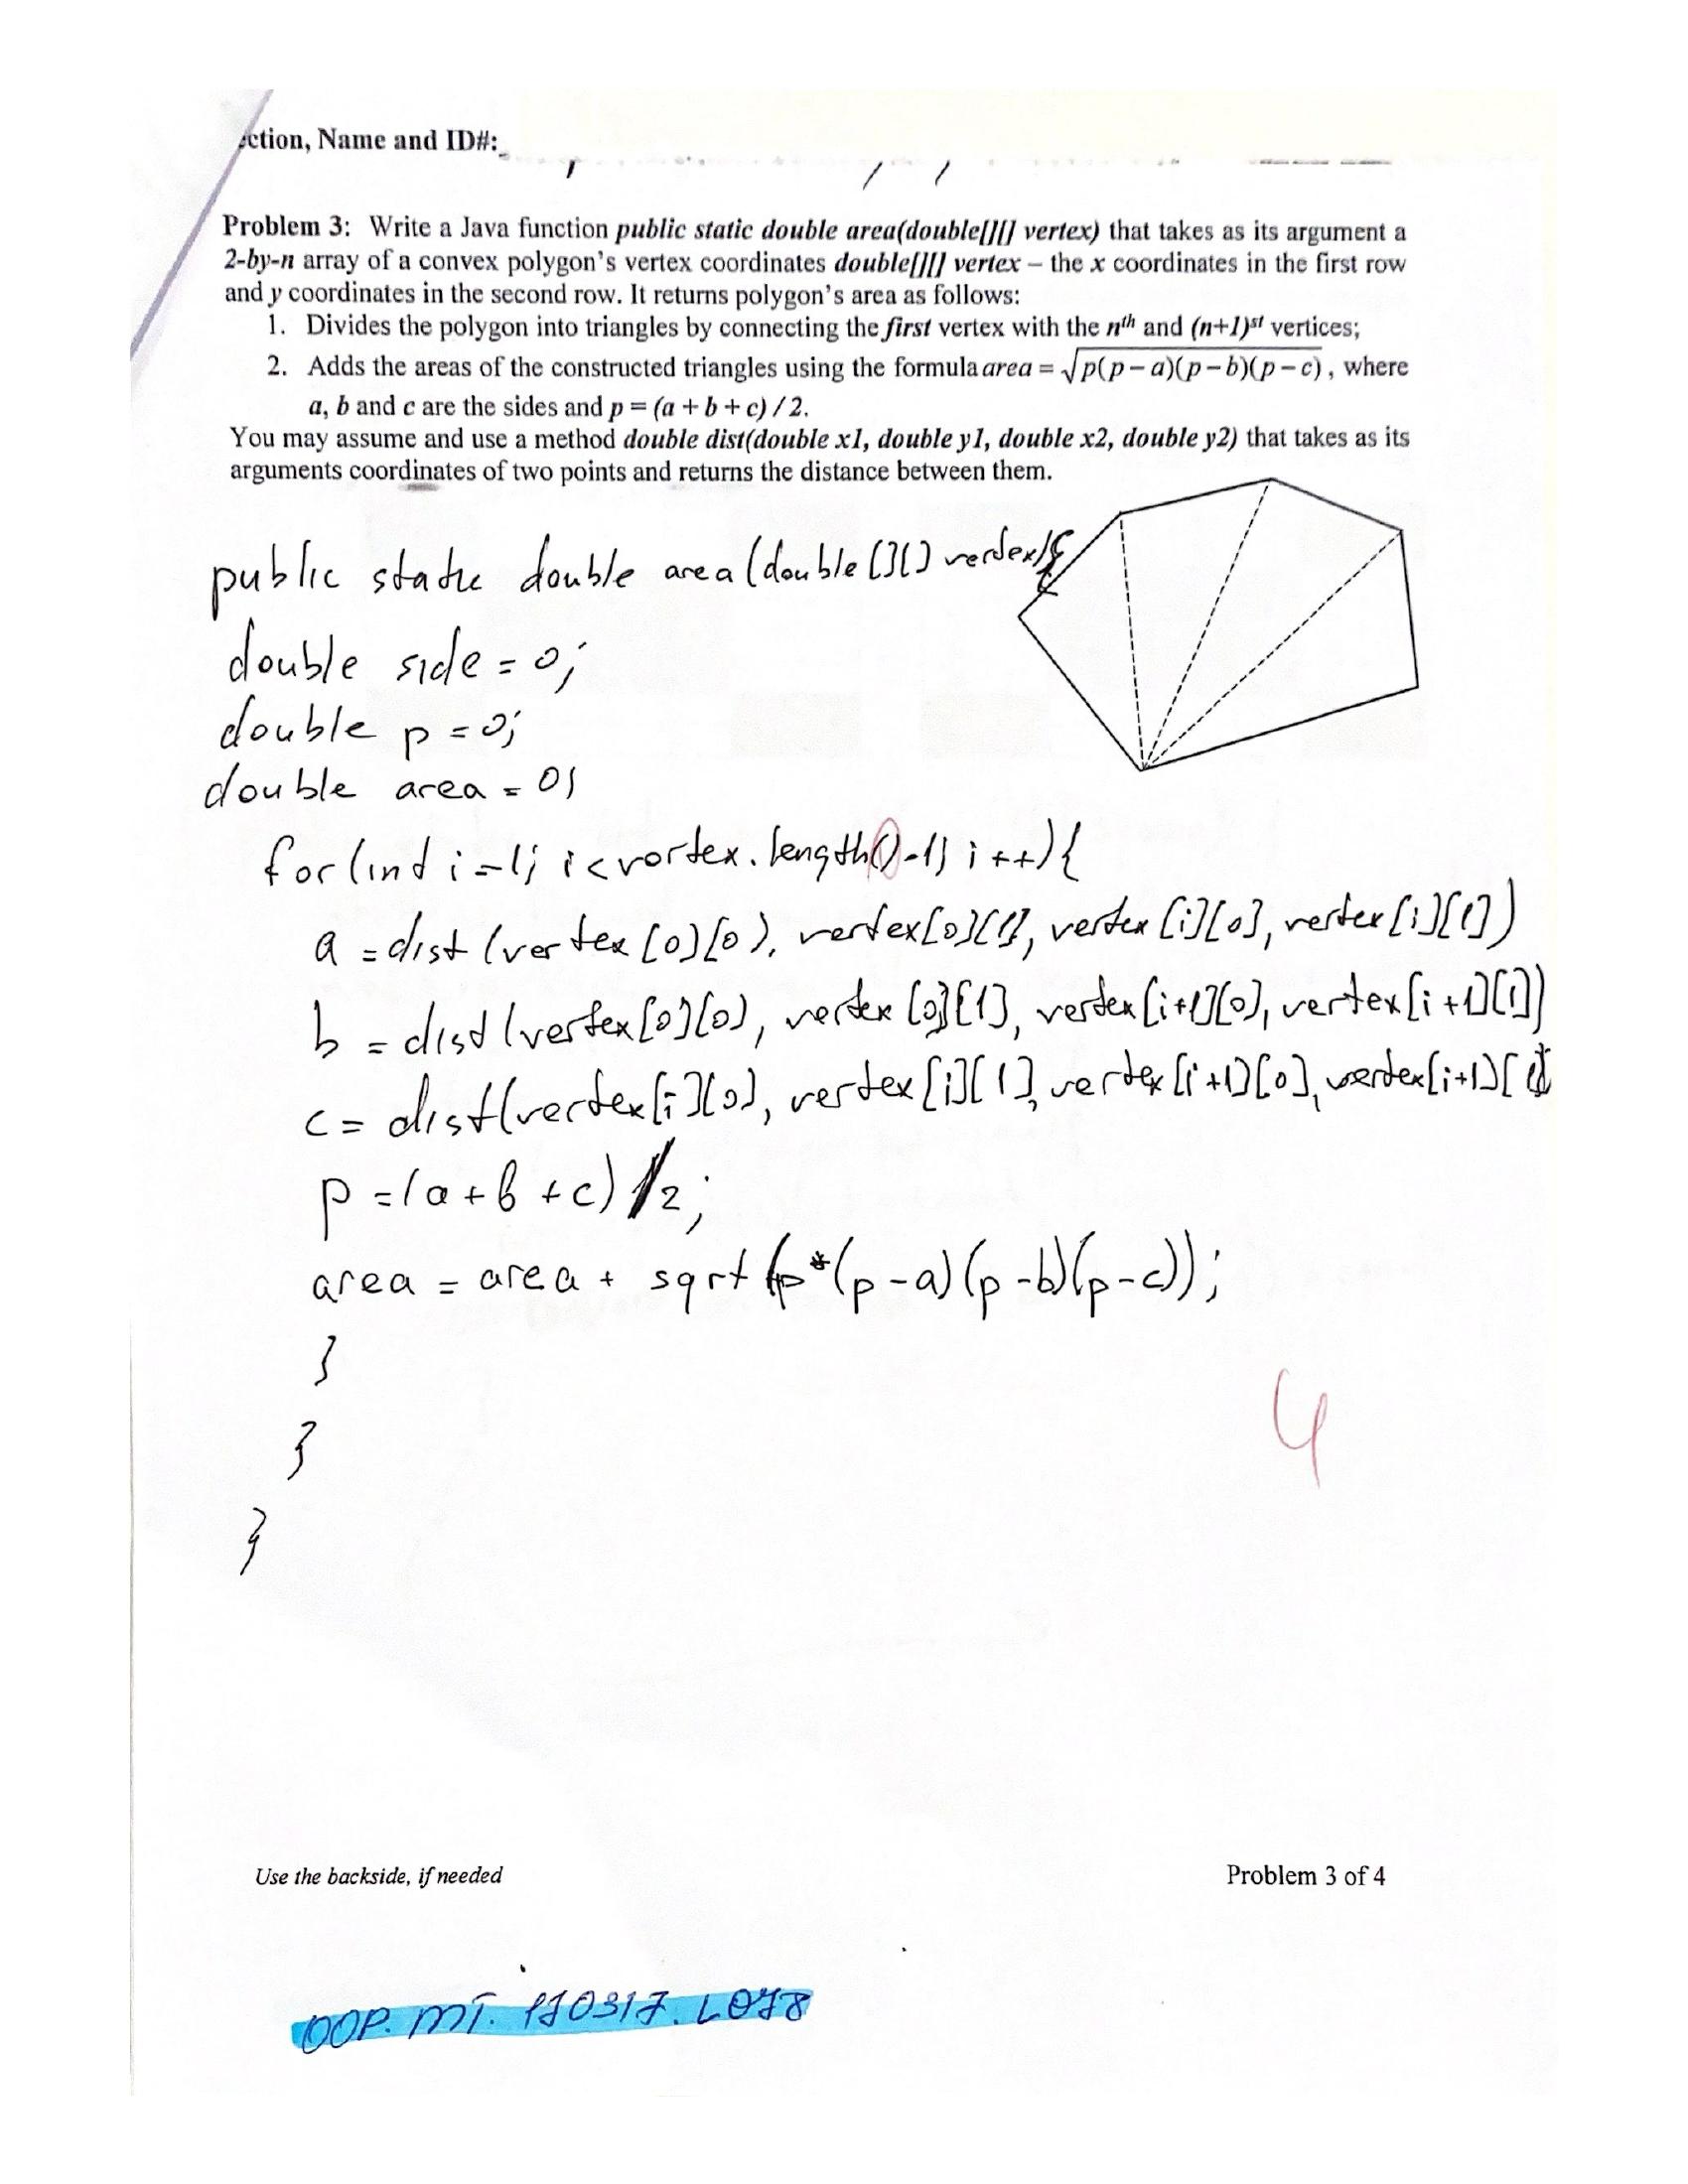 ction, Name and ID#:
Problem 3: Write a Java function public static double area(double[][] vertex) that takes as its argument a
2-by-n array of a convex polygon's vertex coordinates double[][] vertex – the x coordinates in the first row
and y coordinates in the second row. It returns polygon's area as follows:
1. Divides the polygon into triangles by connecting the first vertex with the nth and (n+1)st vertices;
2. Adds the areas of the constructed triangles using the formula area = √p(p−a)(p−b)(p−c), where
a, b and c are the sides and p = (a + b + c) / 2.
You may assume and use a method double dist(double x1, double y1, double x2, double y2) that takes as its
arguments coordinates of two points and returns the distance between them.
public static double area (double [][] vertex){
double side = 0;
double p = 0;
double area = 0;
for (int i = 1; i < vortex.length()-1; i++){
a = dist (vertex [0][0], vertex[0][1], vertex [i][0], vertex [i][1])
b = dist (vertex[0][0), vertex [0][1], vertex [i+1][0], vertex[i+1][1])
c = dist(vertex[i][0], vertex [i][1], vertex [i+1][0], vertex[i+1][1]
p = (a + b + c) / 2;
area = area + sqrt (p*(p-a)(p-b)(p-c));
}
}
}
4
Use the backside, if needed
Problem 3 of 4
OOP. MT. 170317. L078